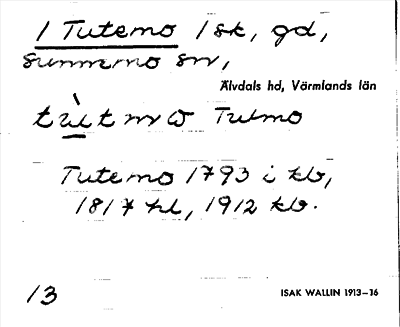 1 Tutemo 1 sk, gd,
Sunnemo sn,
Älvdals hd, Värmlands län
Tutmo
Tutemo 1793 i kb,
1817 hl, 1912 kb.
13
ISAK WALLIN 1913–16